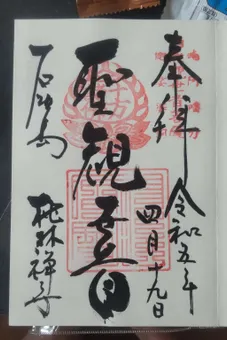 奉拝
令和五年
四月十九日
聖観世音
石垣島
桃林禅寺